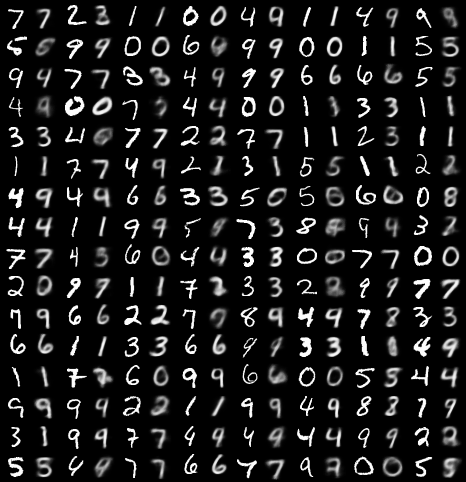 7 7 2 3 1 1 0 0 4 9 1 1 4 9 9 9
5 5 9 9 0 0 6 9 9 0 0 1 1 5 5
9 4 7 7 3 3 4 9 9 9 6 6 6 6 5 5
4 9 0 0 7 4 4 0 0 1 1 3 3 1 1
3 3 4 7 7 2 2 7 7 1 1 2 3 1 1
1 1 7 7 4 9 2 1 3 1 5 5 1 1 2 2
4 9 4 9 6 6 3 3 5 0 5 6 0 0 8
4 4 1 1 9 9 5 7 3 8 9 4 3 2
7 7 4 5 6 0 4 4 3 3 0 0 7 7 0 0
2 0 9 9 1 1 7 2 3 3 2 9 9 7 7
7 9 6 6 2 2 7 8 9 4 9 7 8 3 3
6 6 1 1 3 3 6 6 9 9 3 3 1 1 4 9
1 1 7 2 6 0 9 9 6 6 0 0 5 5 4 4
9 9 9 9 2 2 1 1 9 9 4 9 8 8 7 9
3 1 9 9 7 7 4 9 4 9 4 4 9 9 2 2
5 5 4 9 7 7 6 6 7 7 9 7 0 0 5 5